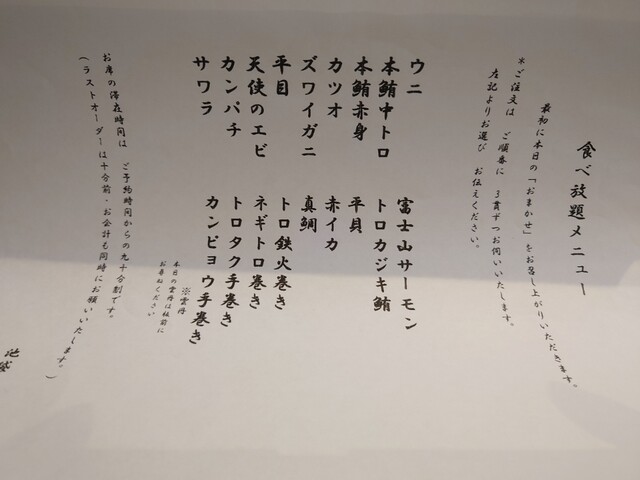 食べ放題メニュー
最初に本日の「おまかせ」をお召し上がりいただきます。
*ご注文は ご順番に 3貫ずつお伺いいたします。
左記よりお選び お伝えください。
ウニ
本鮪中トロ
本鮪赤身
カツオ
ズワイガニ
平目
天使のエビ
カンパチ
サワラ
富士山サーモン
トロカジキ鮪
平貝
赤イカ
真鯛
トロ鉄火巻き
ネギトロ巻き
トロタク手巻き
カンピョウ手巻き
※雲丹
本日の雲丹は板前に
お尋ねください
お席の滞在時間は ご予約時間からの九十分制です。
(ラストオーダーは十分前・お会計も同時にお願いいたします。)